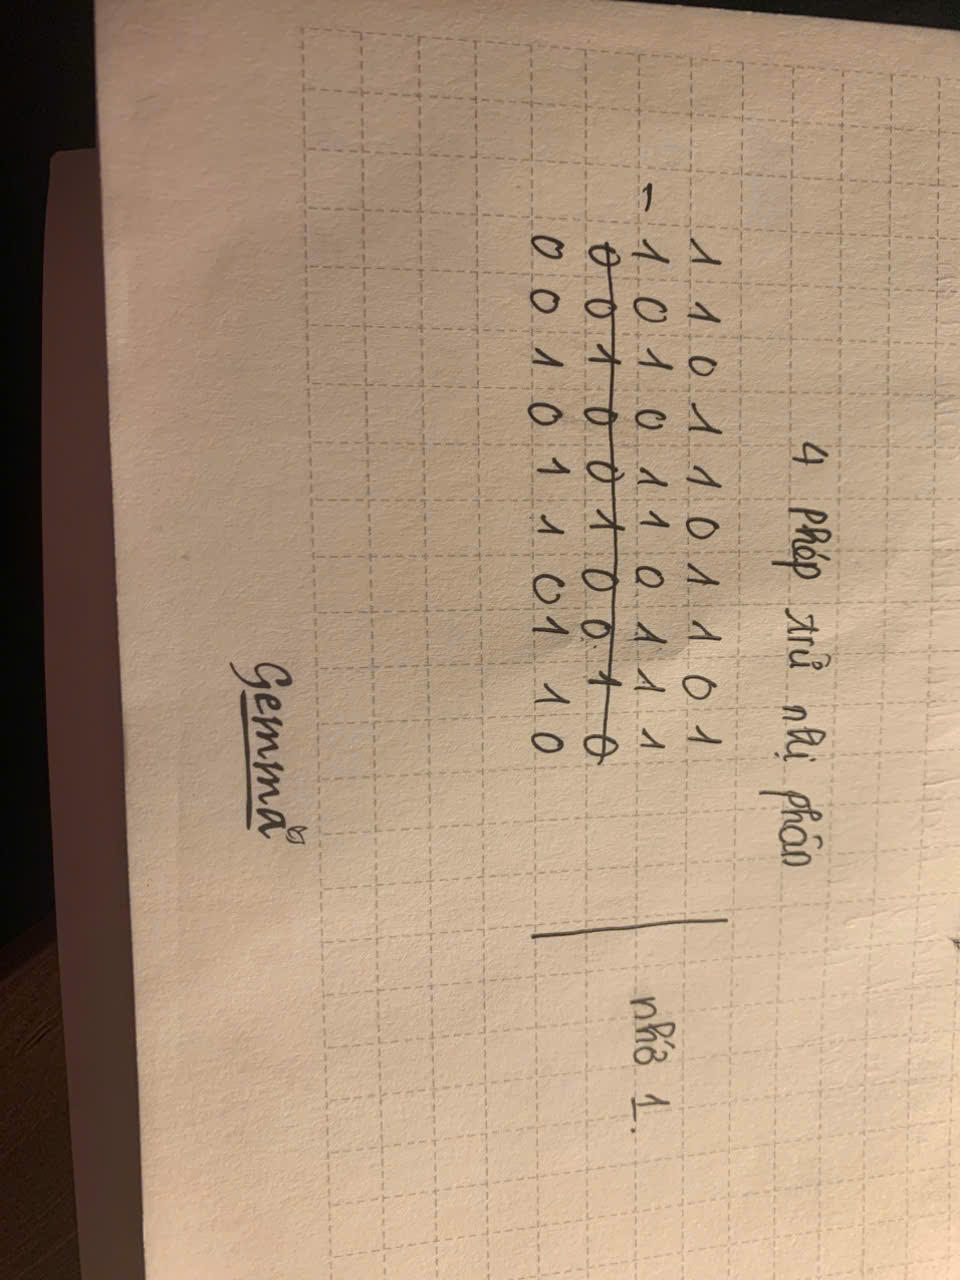 4 phép trừ nhị phân
1 1 0 1 1 0 1 1 0 1
- 1 0 1 0 1 1 0 1 1 1
0 0 1 0 0 1 0 0 1 0
0 0 1 0 1 1 0 1 1 0
nhớ 1.
Gemma